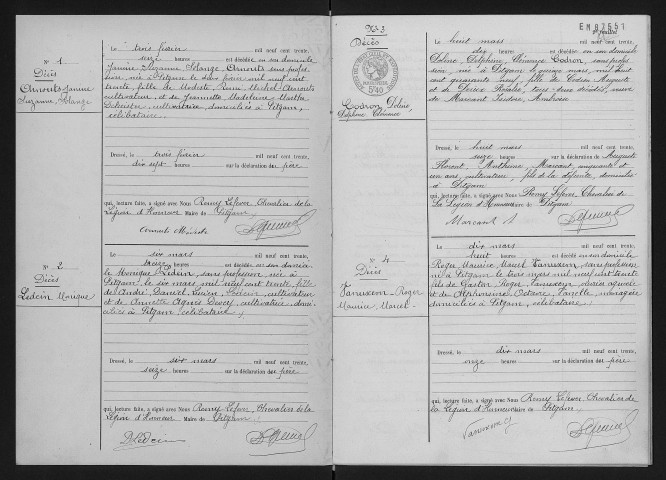 N° 1
Décès
Arnouts Jeanine
Suzanne, Solange
Le trois février mil neuf cent trente,
seize heures est décédée en son domicile
Jeanine Suzanne Solange Arnouts sans profes
sion, née à Pitgam le deux février mil neuf cent
trente, fille de Modeste, Rémi Michel Arnouts
cultivateur et de Jeannette Madeleine Marthe
cultivateurs, domiciliés à Pitgam,
célibataire.
Dressé, le trois février mil neuf cent trente,
dix sept heures sur la déclaration du père
qui, lecture faite, a signé avec Nous Remy Lefever Chevalier de la
Légion d'Honneur Maire de Pitgam
Arnouts Modeste
N° 2
Décès
Ledein Monique
Le six mars mil neuf cent trente,
treize heures est décédée en son domici
le Monique Ledein, sans profession née à
Pitgam, le six mars mil neuf cent trente, fille
de André, Daniel, Lucien, Ledein, cultivateur
et de Annette Agnès cultivatrice, domi
ciliés à Pitgam, célibataire.
Dressé, le six mars mil neuf cent trente,
seize heures sur la déclaration du père
qui, lecture faite, a signé avec Nous Remy Lefever Chevalier de la
Légion d'Honneur Maire de Pitgam.
Ledein
N° 3
Décès
Codron, Deline,
Delphine Clémence
5'40
EM87551
2e feuillet
Le huit mars mil neuf cent trente,
dix heures est décédée en son domicile
Deline, Delphine, Clémence Codron, sans profes
sion, née à Pitgam le quinze mars, mil huit
cent cinquante neuf, fille de Codron Auguste
et de Rosalie, tous deux décédés, veuve
de Marcant Isidore, Ambroise
Dressé, le huit mars mil neuf cent trente,
seize heures sur la déclaration de Auguste
Florent Anthime Marcant, cinquante et
un ans, cultivateur, fils de la défunte, domicilié
à Pitgam
qui, lecture faite, a signé avec Nous Remy Lefever Chevalier de
la Légion d'Honneur Maire de Pitgam.
Marcant A
N° 4
Décès
Vanuxem Roger
Maurice Marcel
Le dix mars mil neuf cent trente,
huit heures est décédé en son domicile
Roger, Maurice, Marcel Vanuxem, sans profession,
né à Pitgam, le trois mars mil neuf cent trente
fils de Gaston, Roger, Vanuxem, ouvrier agricole
et de Alphonsine, Octavie, ménagère
domiciliés à Pitgam, célibataire.
Dressé, le dix mars mil neuf cent trente,
onze heures sur la déclaration du père
qui, lecture faite, a signé avec Nous Remy Lefever, Chevalier de
la Légion d'Honneur Maire de Pitgam.
Vanuxem G